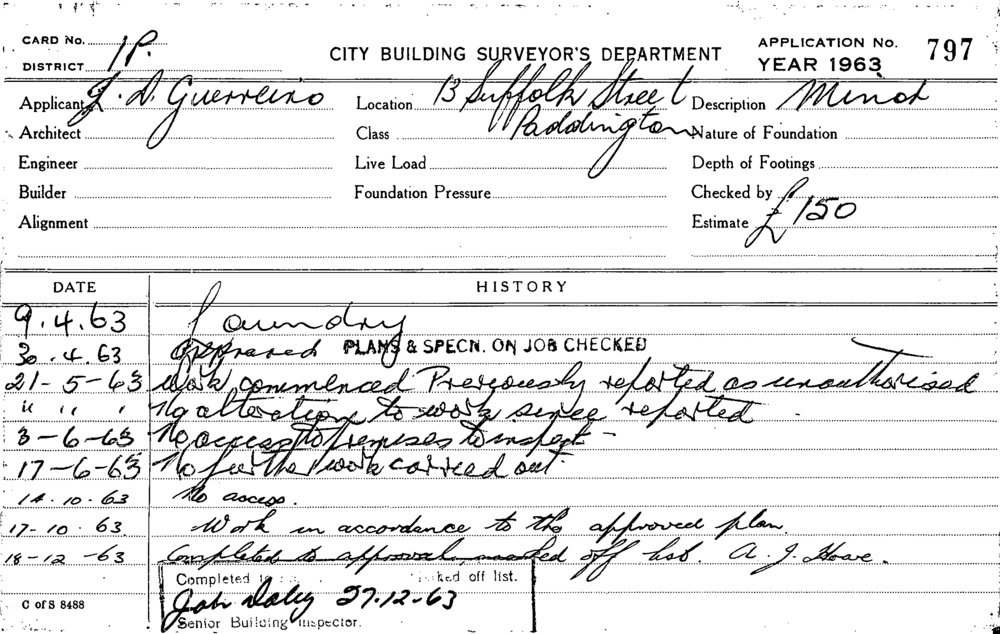 CARD No.
DISTRICT 1P.
CITY BUILDING SURVEYOR'S DEPARTMENT
APPLICATION No. 797
YEAR 1963
Applicant J. D. Guerreiro Location 13 Suffolk Street Description Minor
Architect Class Paddington Nature of Foundation
Engineer Live Load Depth of Footings
Builder Foundation Pressure Checked by
Alignment Estimate £150
DATE HISTORY
9.4.63 Laundry
30.4.63 Approved PLANS & SPECN. ON JOB CHECKED
21-5-63 Work commenced Previously reported as unauthorised
" " " No alteration to work since reported
3-6-63 No access to premises to inspect
17-6-63 No further work carried out.
14.10.63 No access.
17-10.63 Work in accordance to the approved plan.
18-12-63 Completed to approval, marked off list. A. J. Howe.
Completed off list.
27-12-63
C of S 8488 Senior Building Inspector.